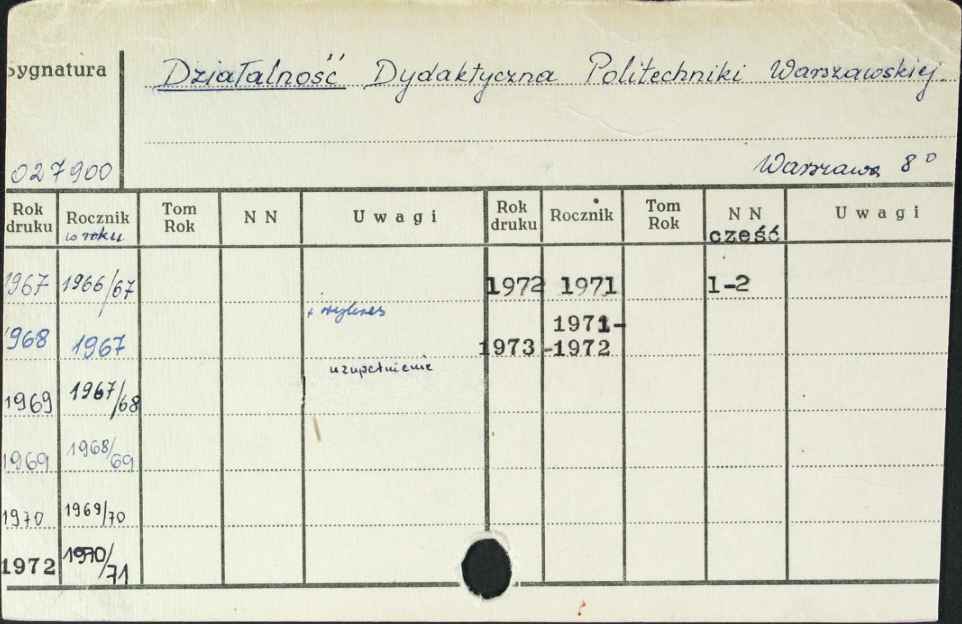 Sygnatura
Działalność Dydaktyczna Politechniki Warszawskiej.
027900
Warszawa 8°
Rok druku Rocznik w roku Tom Rok N N Uwagi Rok druku Rocznik Tom Rok N N część Uwagi
1967 1966/67 1972 1971 1-2
1968 1967 + wykres 1973 1971-1972
1969 1967/68 uzupełnienie
1969 1968/69
1970 1969/70
1972 1970/71